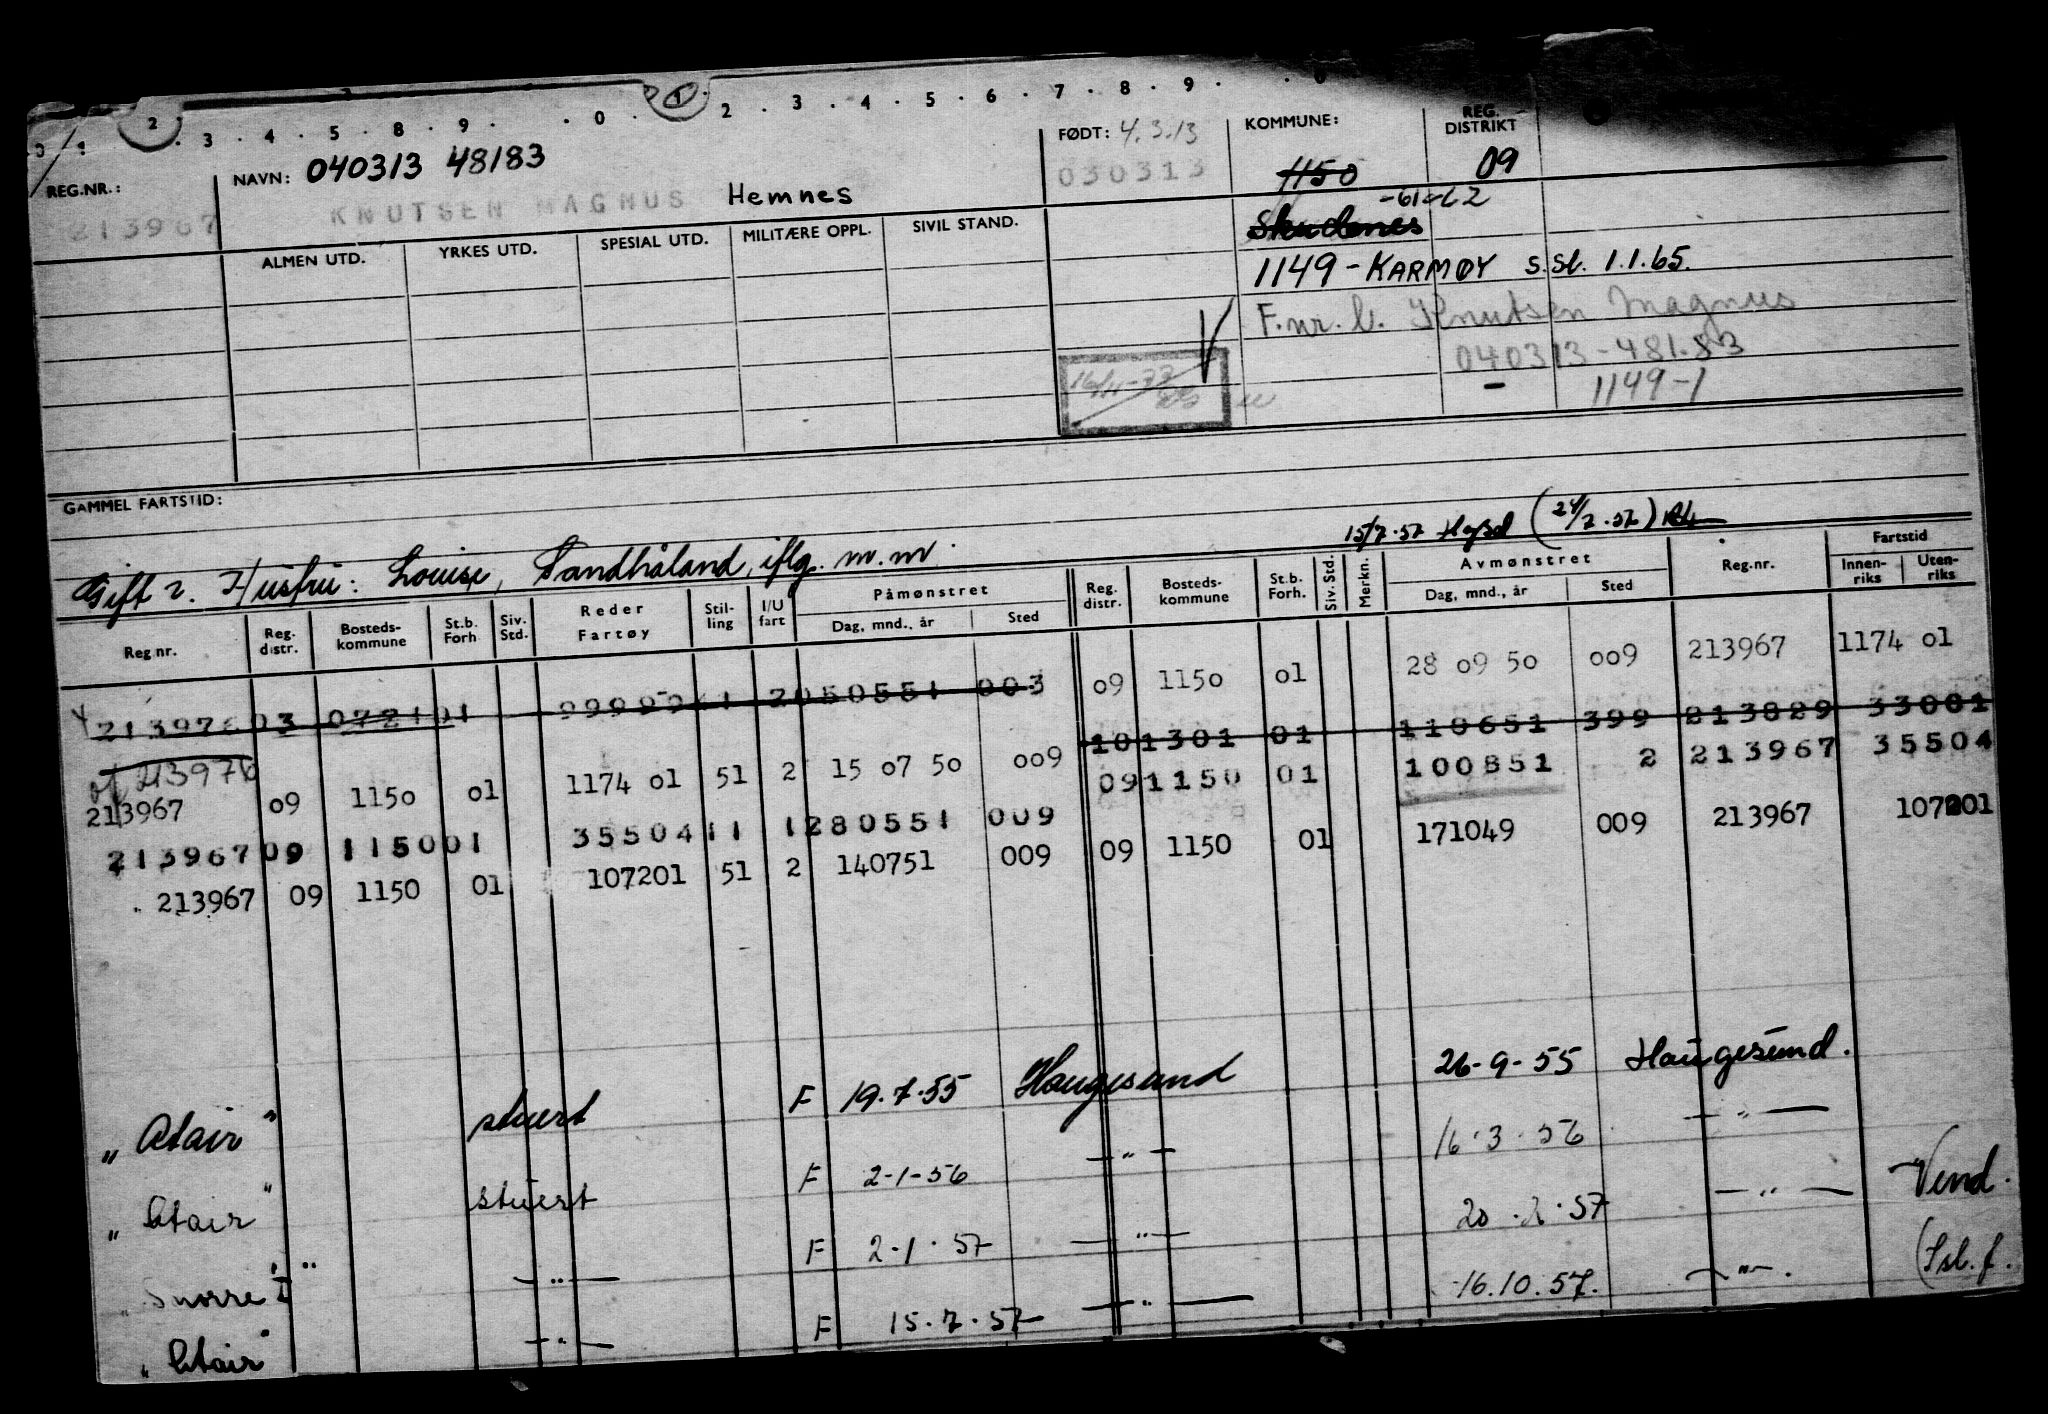 0 1 2 . 3 . 4 . 5 . 8 . 9 . . 0 . 1 . 2 . 3 . 4 . 5 . 6 . 7 . 8 . 9 . . 0
REG.NR.: NAVN: 040313 48183 FØDT: 4.3.13 KOMMUNE: REG. DISTRIKT
213967 KNUTSEN MAGNUS Hemnes 030313 1150 09
-61-62
ALMEN UTD. YRKES UTD. SPESIAL UTD. MILITÆRE OPPL. SIVIL STAND. Skudenes
1149 - KARMØY s.sl. 1.1.65.
F.nr. b. Knutsen Magnus
040313-481.83
16/11-73 - 1149-1
GAMMEL FARTSTID:
15/7.57 Hgsd (24/7.57)
Gift 2. Hustru: Louise, Sandhåland, iflg. m.m.
Reg nr. Reg. distr. Bosteds-kommune St.b. Forh Siv. Std. Reder Fartøy Stil-ling I/U fart Påmønstret Dag, mnd., år Sted Reg. distr. Bosteds-kommune St.b. Forh. Siv. Std. Merkn. Avmønstret Dag, mnd., år Sted Reg.nr. Fartstid Innen-riks Uten-riks
213976 03 0721 01 999996 11 2 050551 003 09 1150 01 28 09 50 009 213967 1174 01
of 213976 101301 01 110651 399 213829 33001
213967 09 1150 01 1174 01 51 2 15 07 50 009 09 1150 01 100851 2 213967 35504
213967 09 1150 01 35504 11 1 280551 009 09 1150 01 171049 009 213967 107201
213967 09 1150 01 107201 51 2 140751 009
"Atair" stuert F 19.7.55 Haugesund 26-9-55 Haugesund.
"Atair" stuert F 2-1-56 —"— 16.3.56 —"—
"Snorre I" —"— F 2-1.57 —"— 20.2.57 —"— Vend.
"Atair" —"— F 15.7.57 —"— 16.10.57. —"—. (Isl.f.